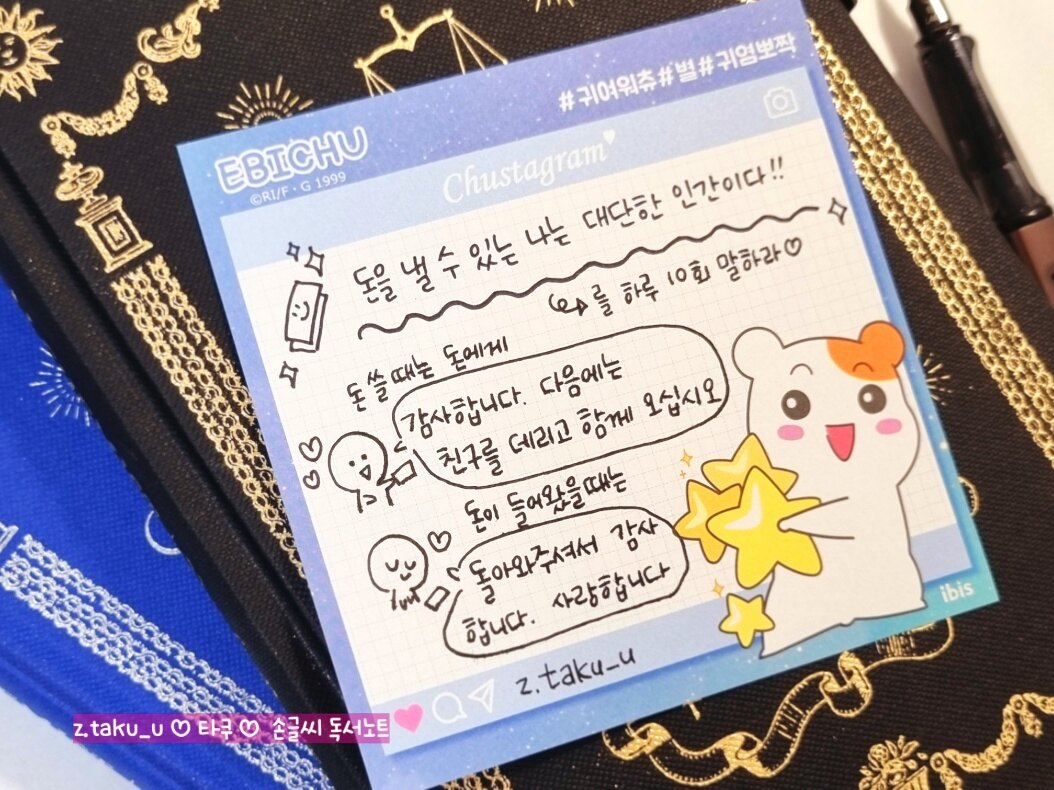 #귀여워츄#별#귀염뽀짝
EBICHU
©RI/F・G 1999
Chustagram
돈을 낼 수 있는 나는 대단한 인간이다!!
를 하루 10회 말하라♡
돈 쓸 때는 돈에게
감사합니다. 다음에는
친구를 데리고 함께 오십시오
돈이 들어왔을때는
돌아와주셔서 감사
합니다. 사랑합니다
ibis
z.taku_u
z.taku_u ♡ 타쿠 ♡ 손글씨 독서노트